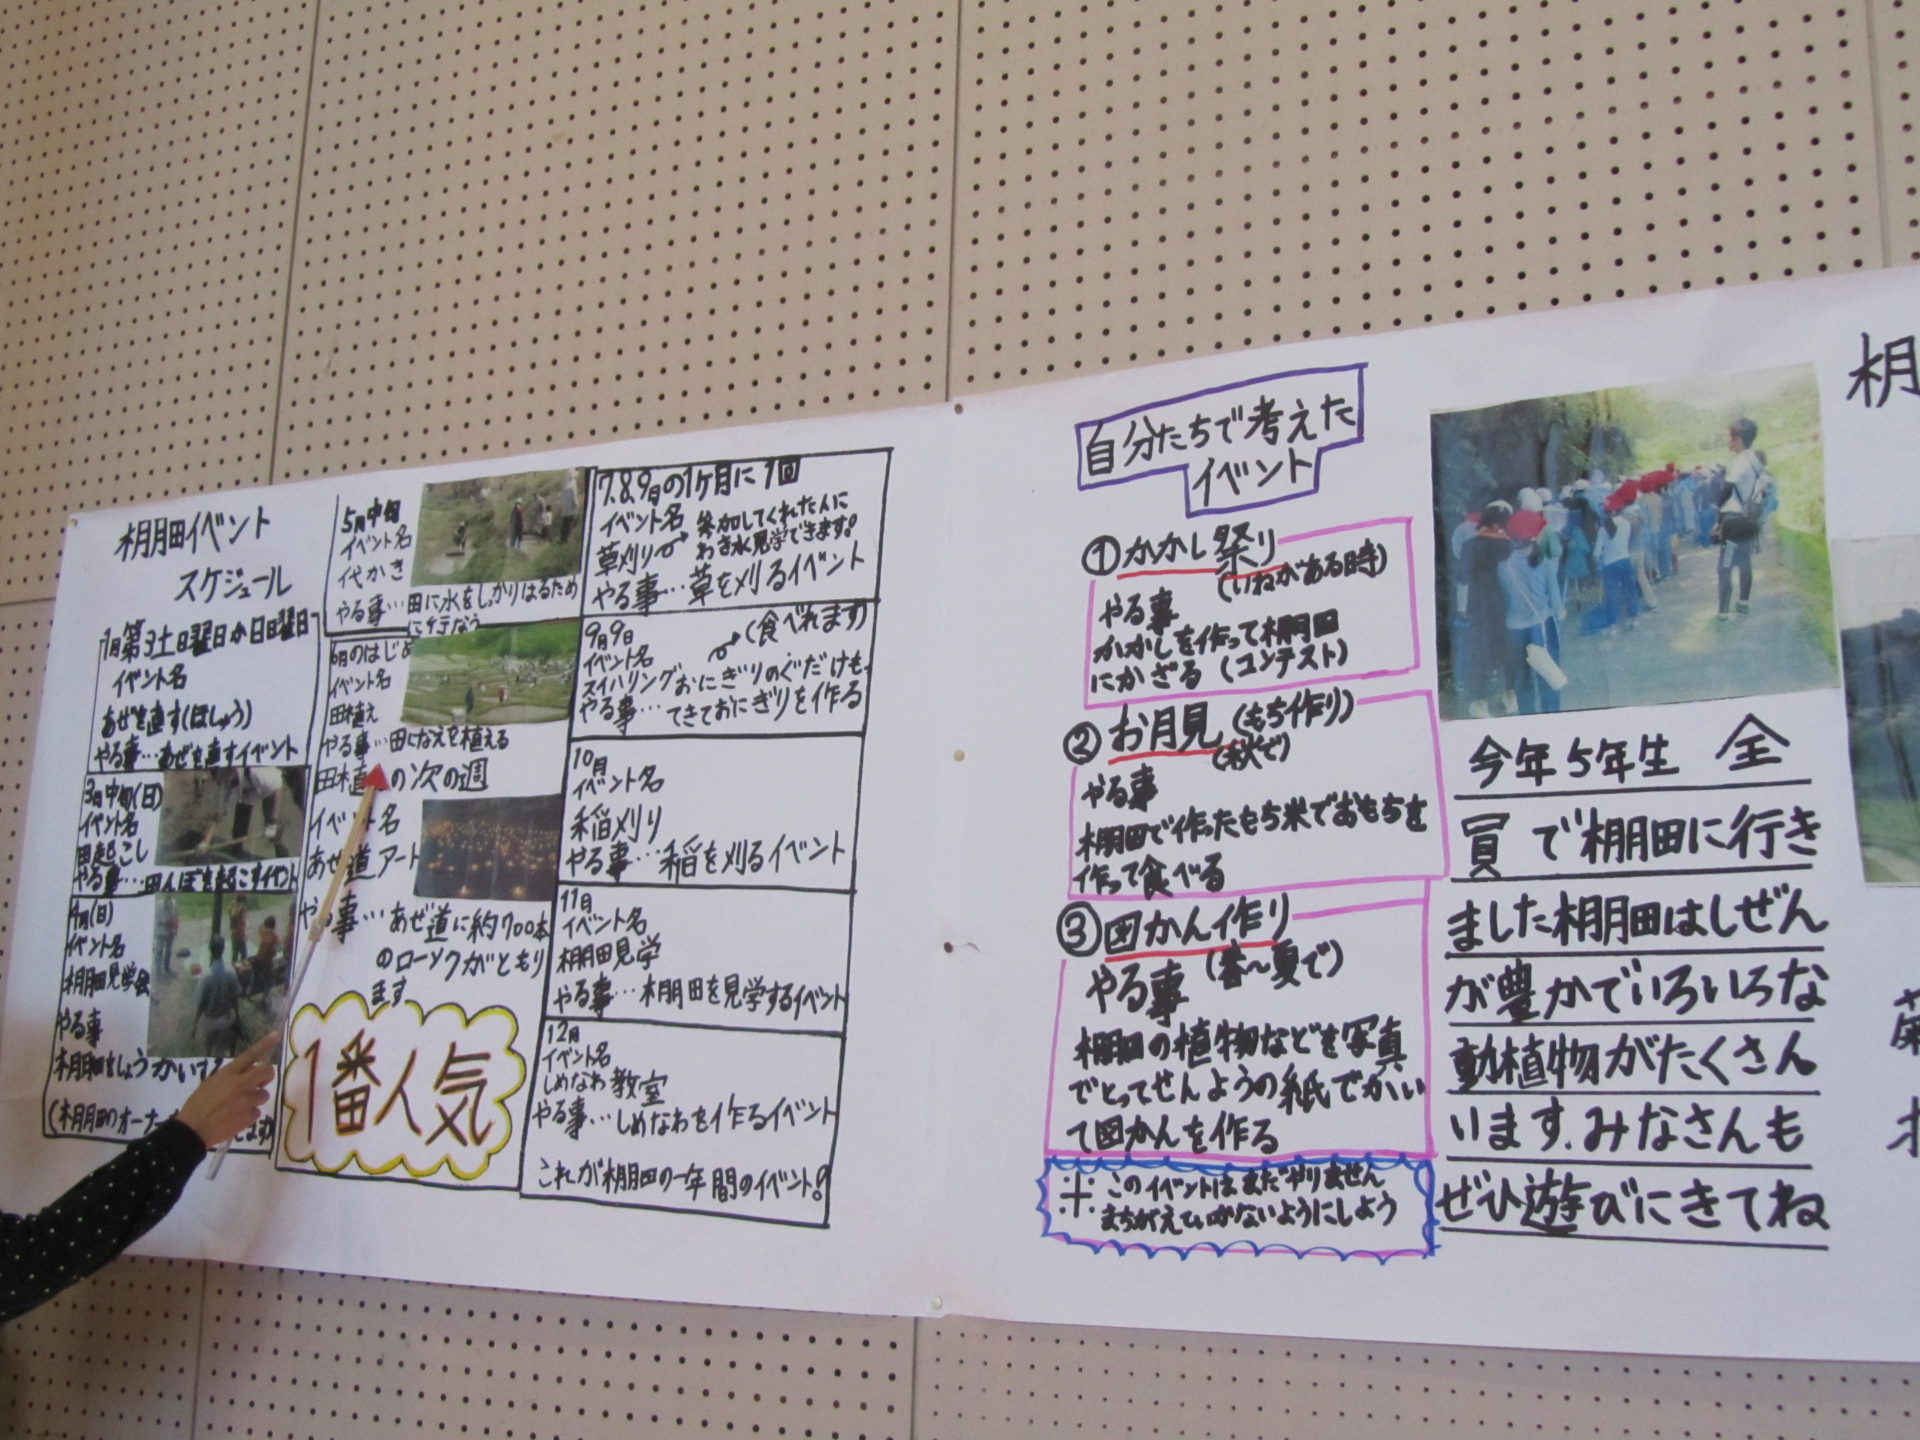 棚田イベント
スケジュール
1月第3土日曜日か日曜日
イベント名
あぜを直す(ほしゅう)
やる事…あぜを直すイベント
3月中旬(日)
イベント名
田起こし
やる事…田んぼを起こすイベント
4月(日)
イベント名
棚田見学会
やる事
棚田をしょうかいする
(棚田のオーナー
5月中旬
イベント名
代かき
やる事…田に水をしっかりはるため
に行なう
6月のはじめ
イベント名
田植え
やる事…田になえを植える
田植えの次の週
イベント名
あぜ道アート
やる事…あぜ道に約700本
のローソクがともり
ます
1番人気
7,8,9月の1ヶ月に1回
イベント名
草刈り
参加してくれた人に
わき水見学できます。
やる事…草を刈るイベント
9月9日
イベント名
(食べれます)
スイハリング
やる事…
おにぎりのぐだけもっ
てきておにぎりを作る
10月
イベント名
稲刈り
やる事…稲を刈るイベント
11月
イベント名
棚田見学
やる事…棚田を見学するイベント
12月
イベント名
しめなわ教室
やる事…しめなわを作るイベント
これが棚田の一年間のイベント!
自分たちで考えた
イベント
①かかし祭り
(いねがある時)
やる事
かかしを作って棚田
にかざる(コンテスト)
②お月見(もち作り)
(秋で)
やる事
棚田で作ったもち米でおもちを
作って食べる
③図かん作り
(春〜夏で)
やる事
棚田の植物などを写真
でとってせんようの紙でかい
て図かんを作る
※このイベントはまだやりません
まちがえていかないようにしよう
今年5年生 全
員で棚田に行き
ました棚田はしぜん
が豊かでいろいろな
動植物がたくさん
います.みなさんも
ぜひ遊びにきてね
棚